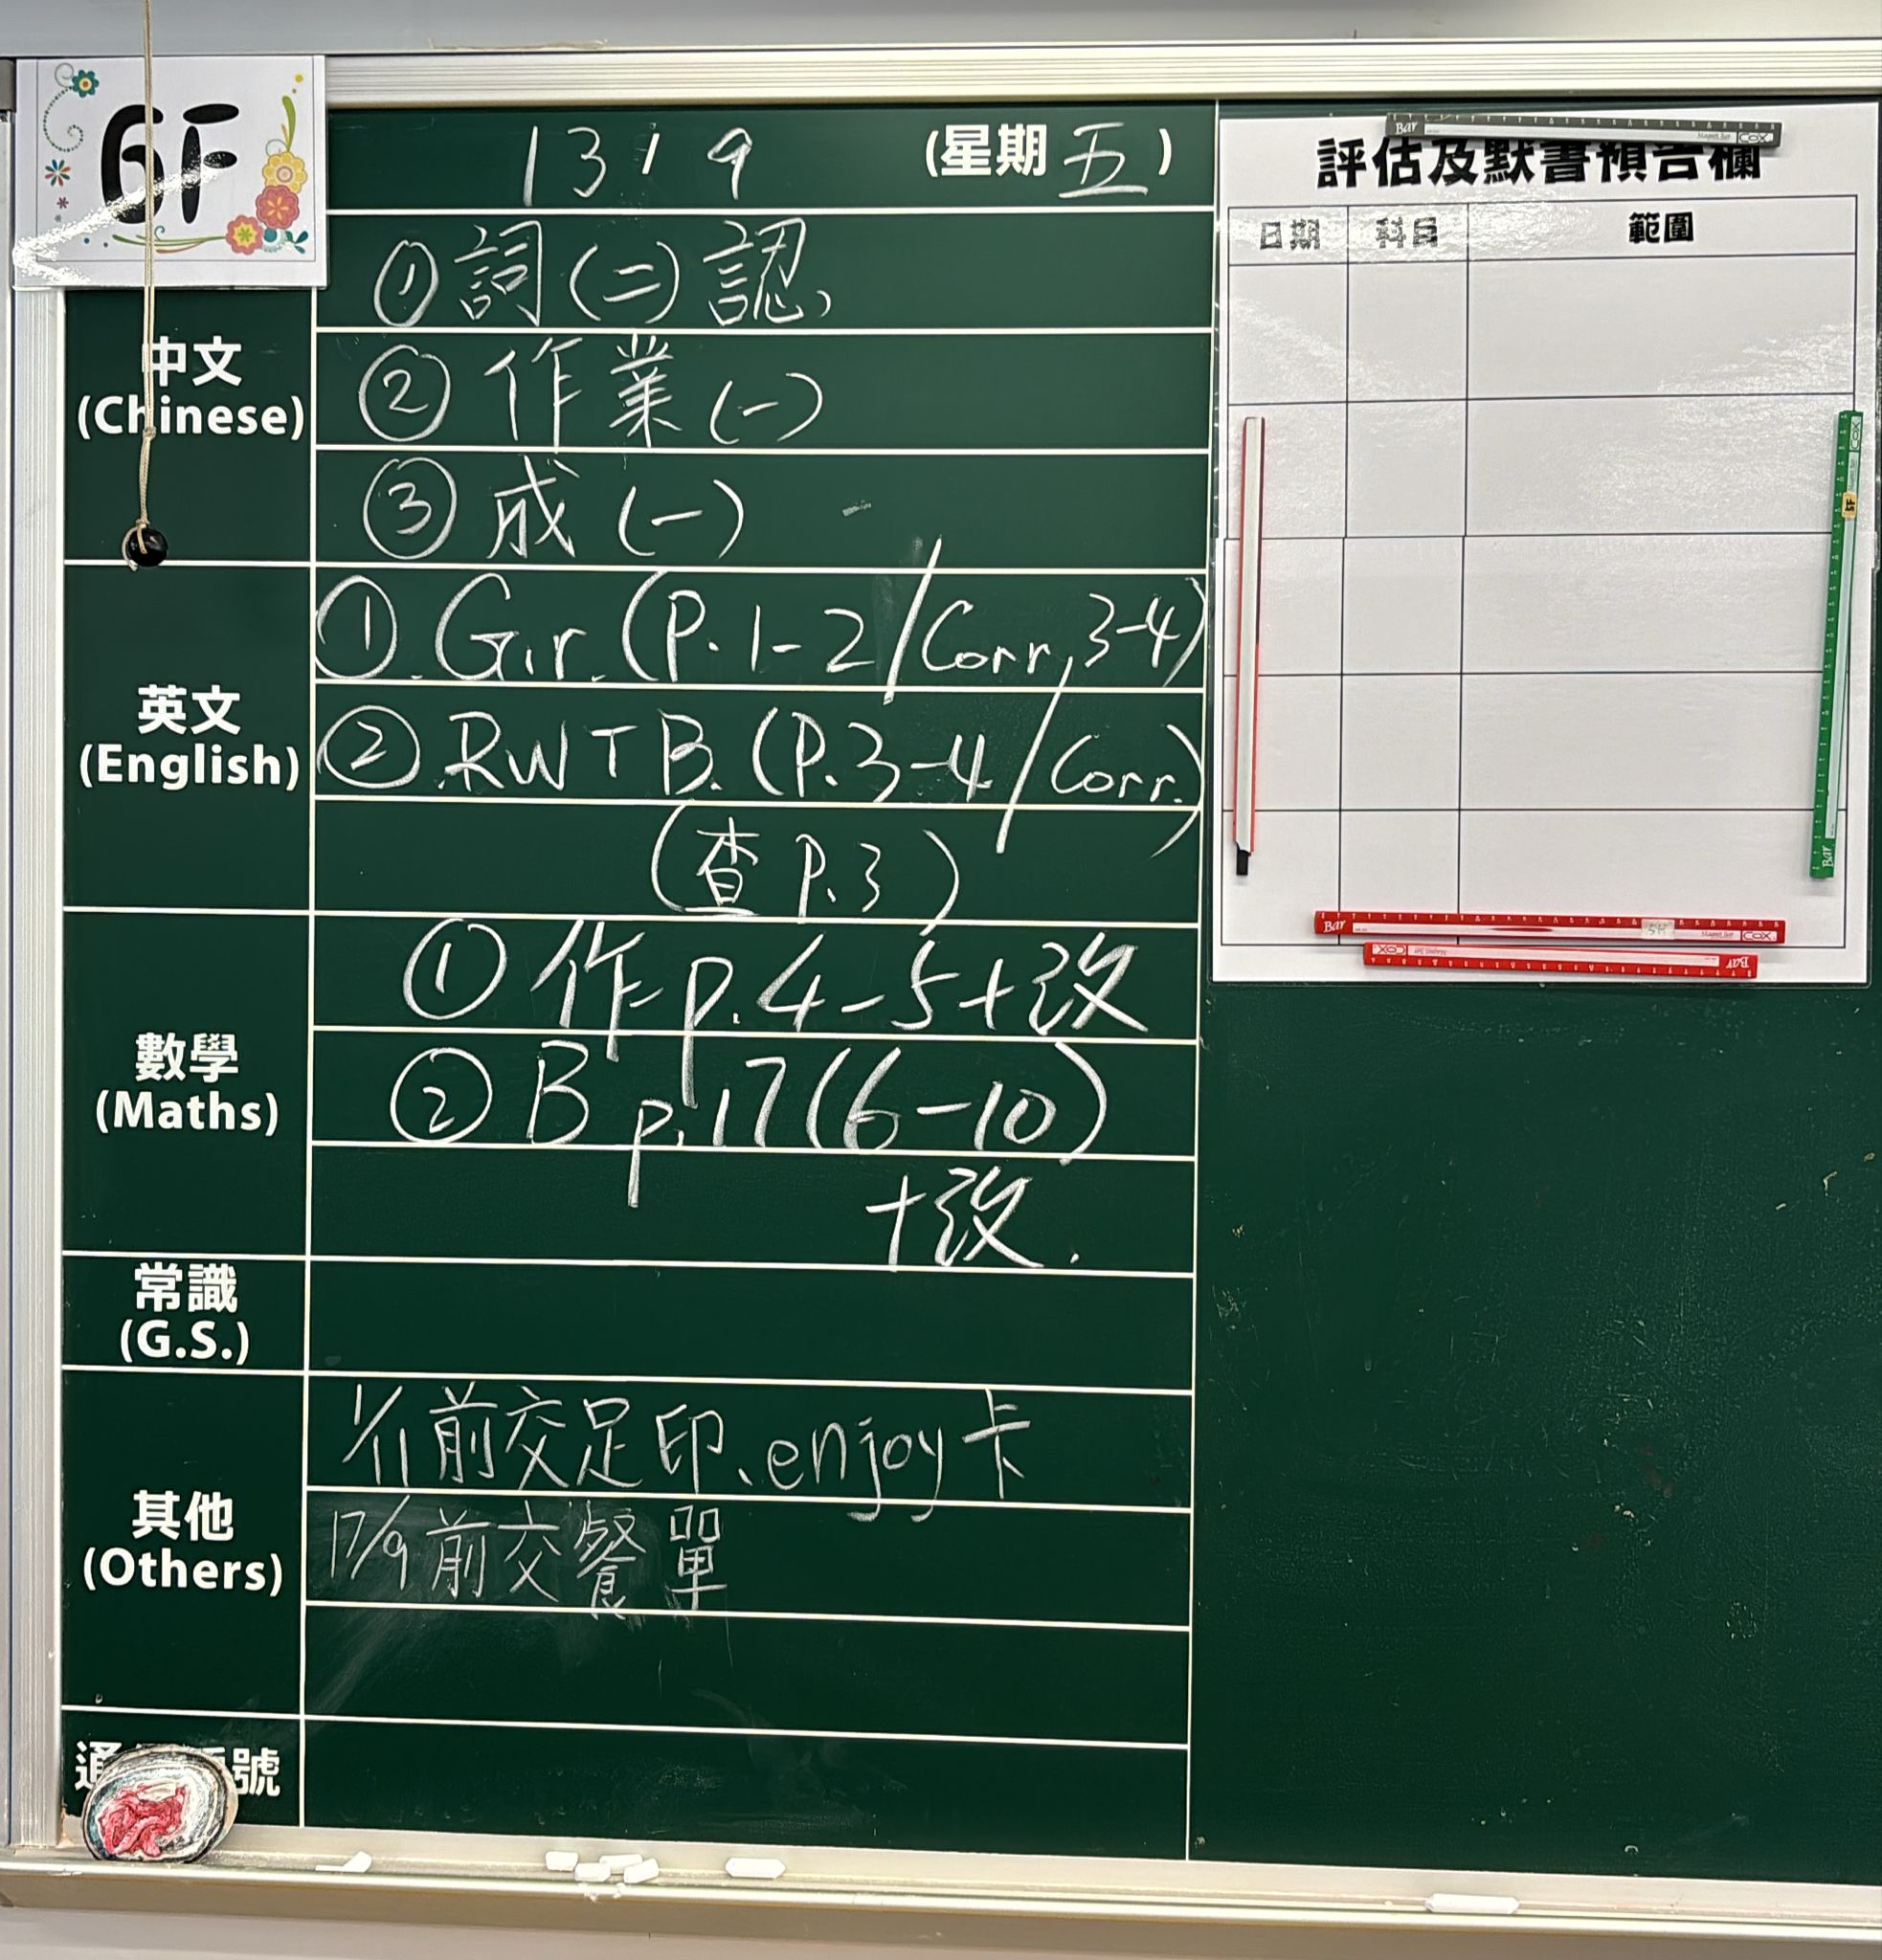 6F
13 / 9 (星期五)
評估及默書預告欄
日期 科目 範圍
中文
(Chinese)
① 詞(二)認
② 作業(一)
③ 成(一)
英文
(English)
①. Gr. (P. 1-2/Corr, 3-4)
② RWTB. (P. 3-4/Corr.)
(查 P.3)
數學
(Maths)
① 作 p.4-5+改
② B p.17(6-10)
+改.
常識
(G.S.)
其他
(Others)
1/11前交足印、enjoy卡
17/9前交餐單
通 號
Bar
COX
Bar
COX
5F
Bar
5H
COX
Bar
COX